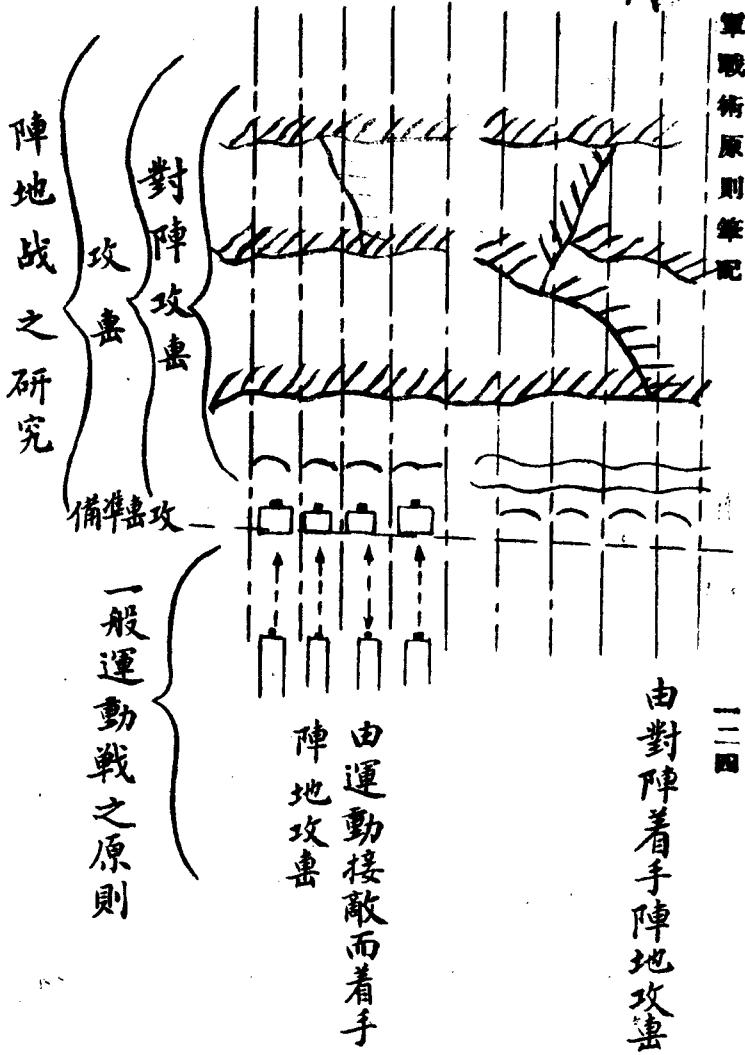 軍戰術原則筆配
一二四
由對陣着手陣地攻軎
由運動接敵而着手
陣地攻軎
對陣攻軎
攻軎
陣地战之研究
攻軎準備
一般運動戰之原則